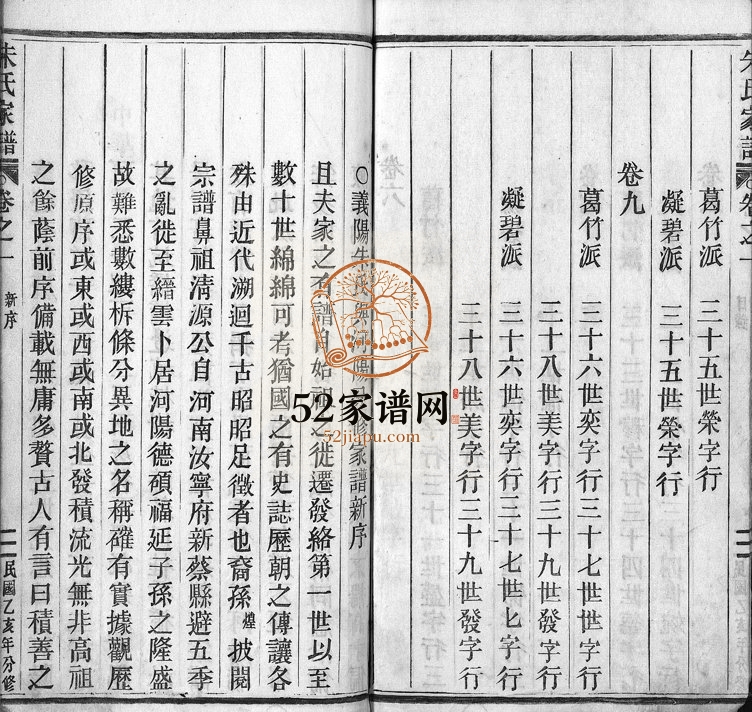 朱氏家譜
葛竹派 三十五世榮字行
凝碧派 三十五世榮字行
卷九
葛竹派 三十六世奕字行 三十七世世字行
三十八世美字行 三十九世發字行
凝碧派 三十六世奕字行 三十七世七字行
三十八世美字行 三十九世發字行
〇義陽朱氏與河陽修家譜新序
且夫家之有譜自始祖之徙遷發絡第一世以至
數十世綿綿可考猶國之有史誌歷朝之傳讓各
殊由近代溯迴千古昭昭足徵者也裔孫煌披閱
宗譜鼻祖清源公自河南汝寧府新蔡縣避五季
之亂徙至縉雲卜居河陽德碩福延子孫之隆盛
故難悉數縷柝條分異地之名稱確有實據觀歷
修原序或東或西或南或北發積流光無非高祖
之餘蔭前序備載無庸多贅古人有言曰積善之
朱氏家譜 卷之一 新序 二 民國乙亥年分修
52家谱网
52jiapu.com